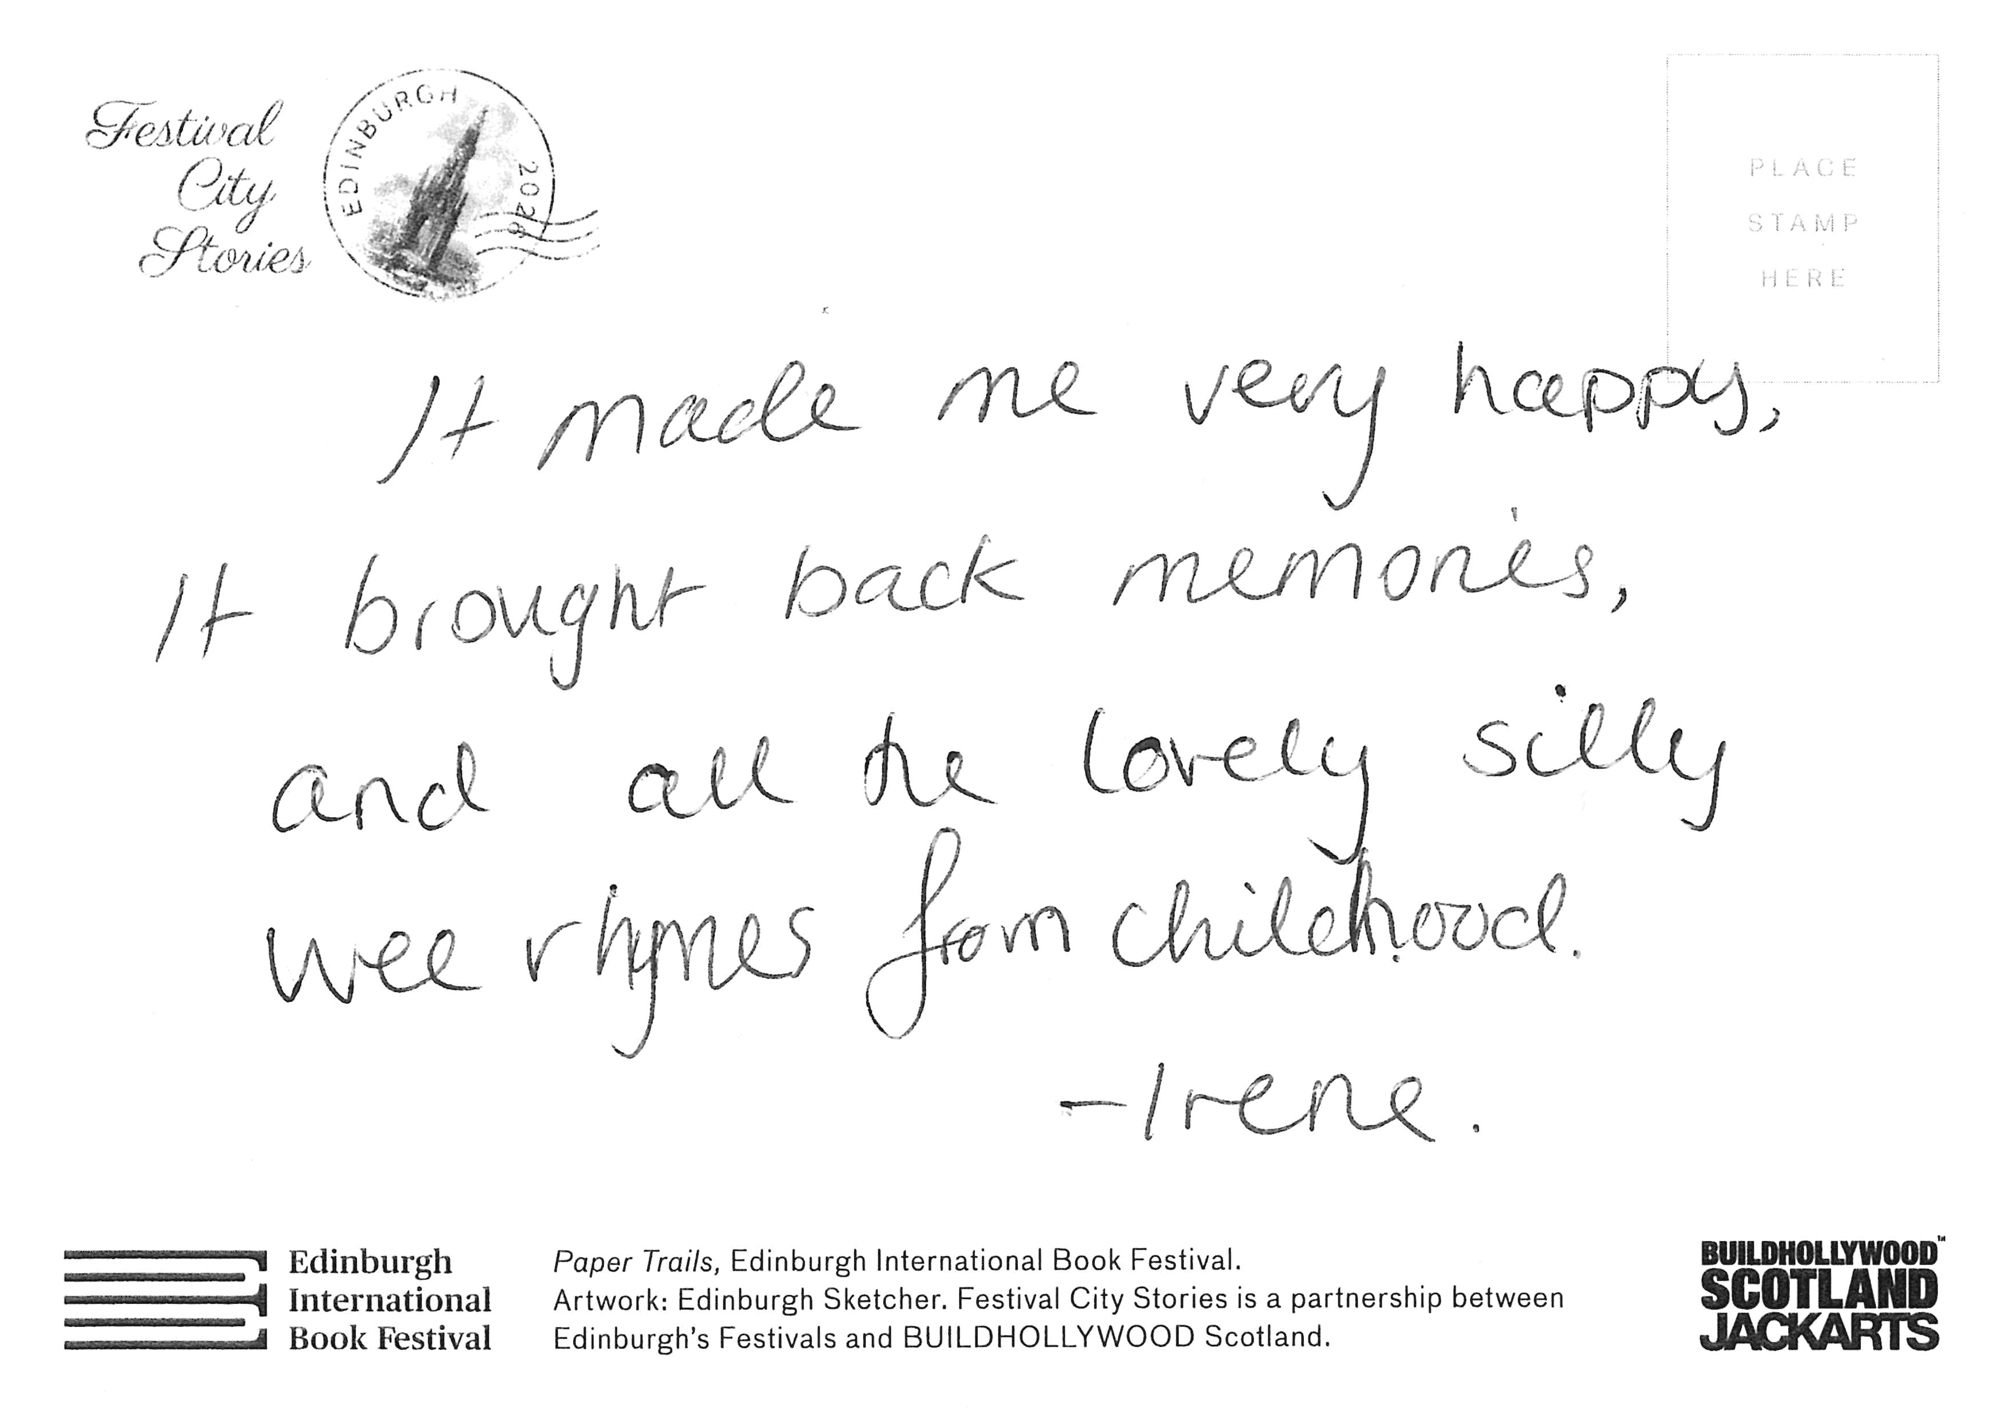 Festival
City
Stories
EDINBURGH
2026
PLACE
STAMP
HERE
It made me very happy,
It brought back memories,
and all the lovely silly
wee rhymes from childhood.
- Irene.
Edinburgh
International
Book Festival
Paper Trails, Edinburgh International Book Festival.
Artwork: Edinburgh Sketcher. Festival City Stories is a partnership between
Edinburgh's Festivals and BUILDHOLLYWOOD Scotland.
BUILDHOLLYWOOD™
SCOTLAND
JACKARTS